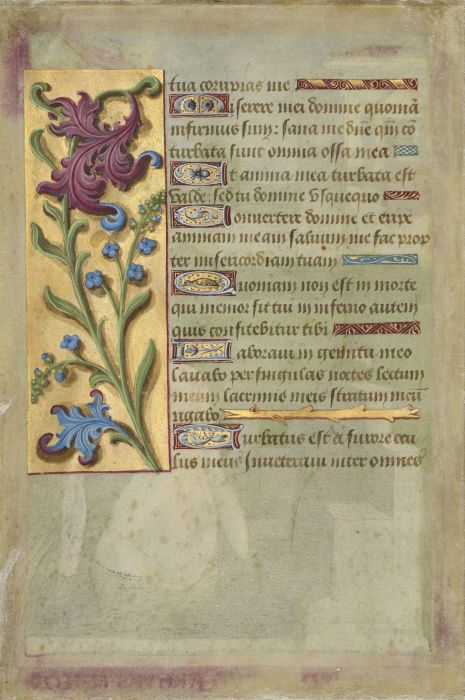 tua corripias me
Miserere mei domine quoniā
infirmus sum : sana me dn̄e qm̄ cō
turbata sunt omnia ossa mea
Et anima mea turbata est
valde : sed tu domine vsquequo
Conuertere domine et eripe
animam meam saluum me fac prop
ter misericordiam tuam
Quoniam non est in morte
qui memor sit tui in inferno autem
quis confitebitur tibi
Laboraui in gemitu meo
lauabo per singulas noctes lectum
meum lacrimis meis stratum meū
rigabo
Turbatus est a furore ocu
lus meus Inueteraui inter omnes